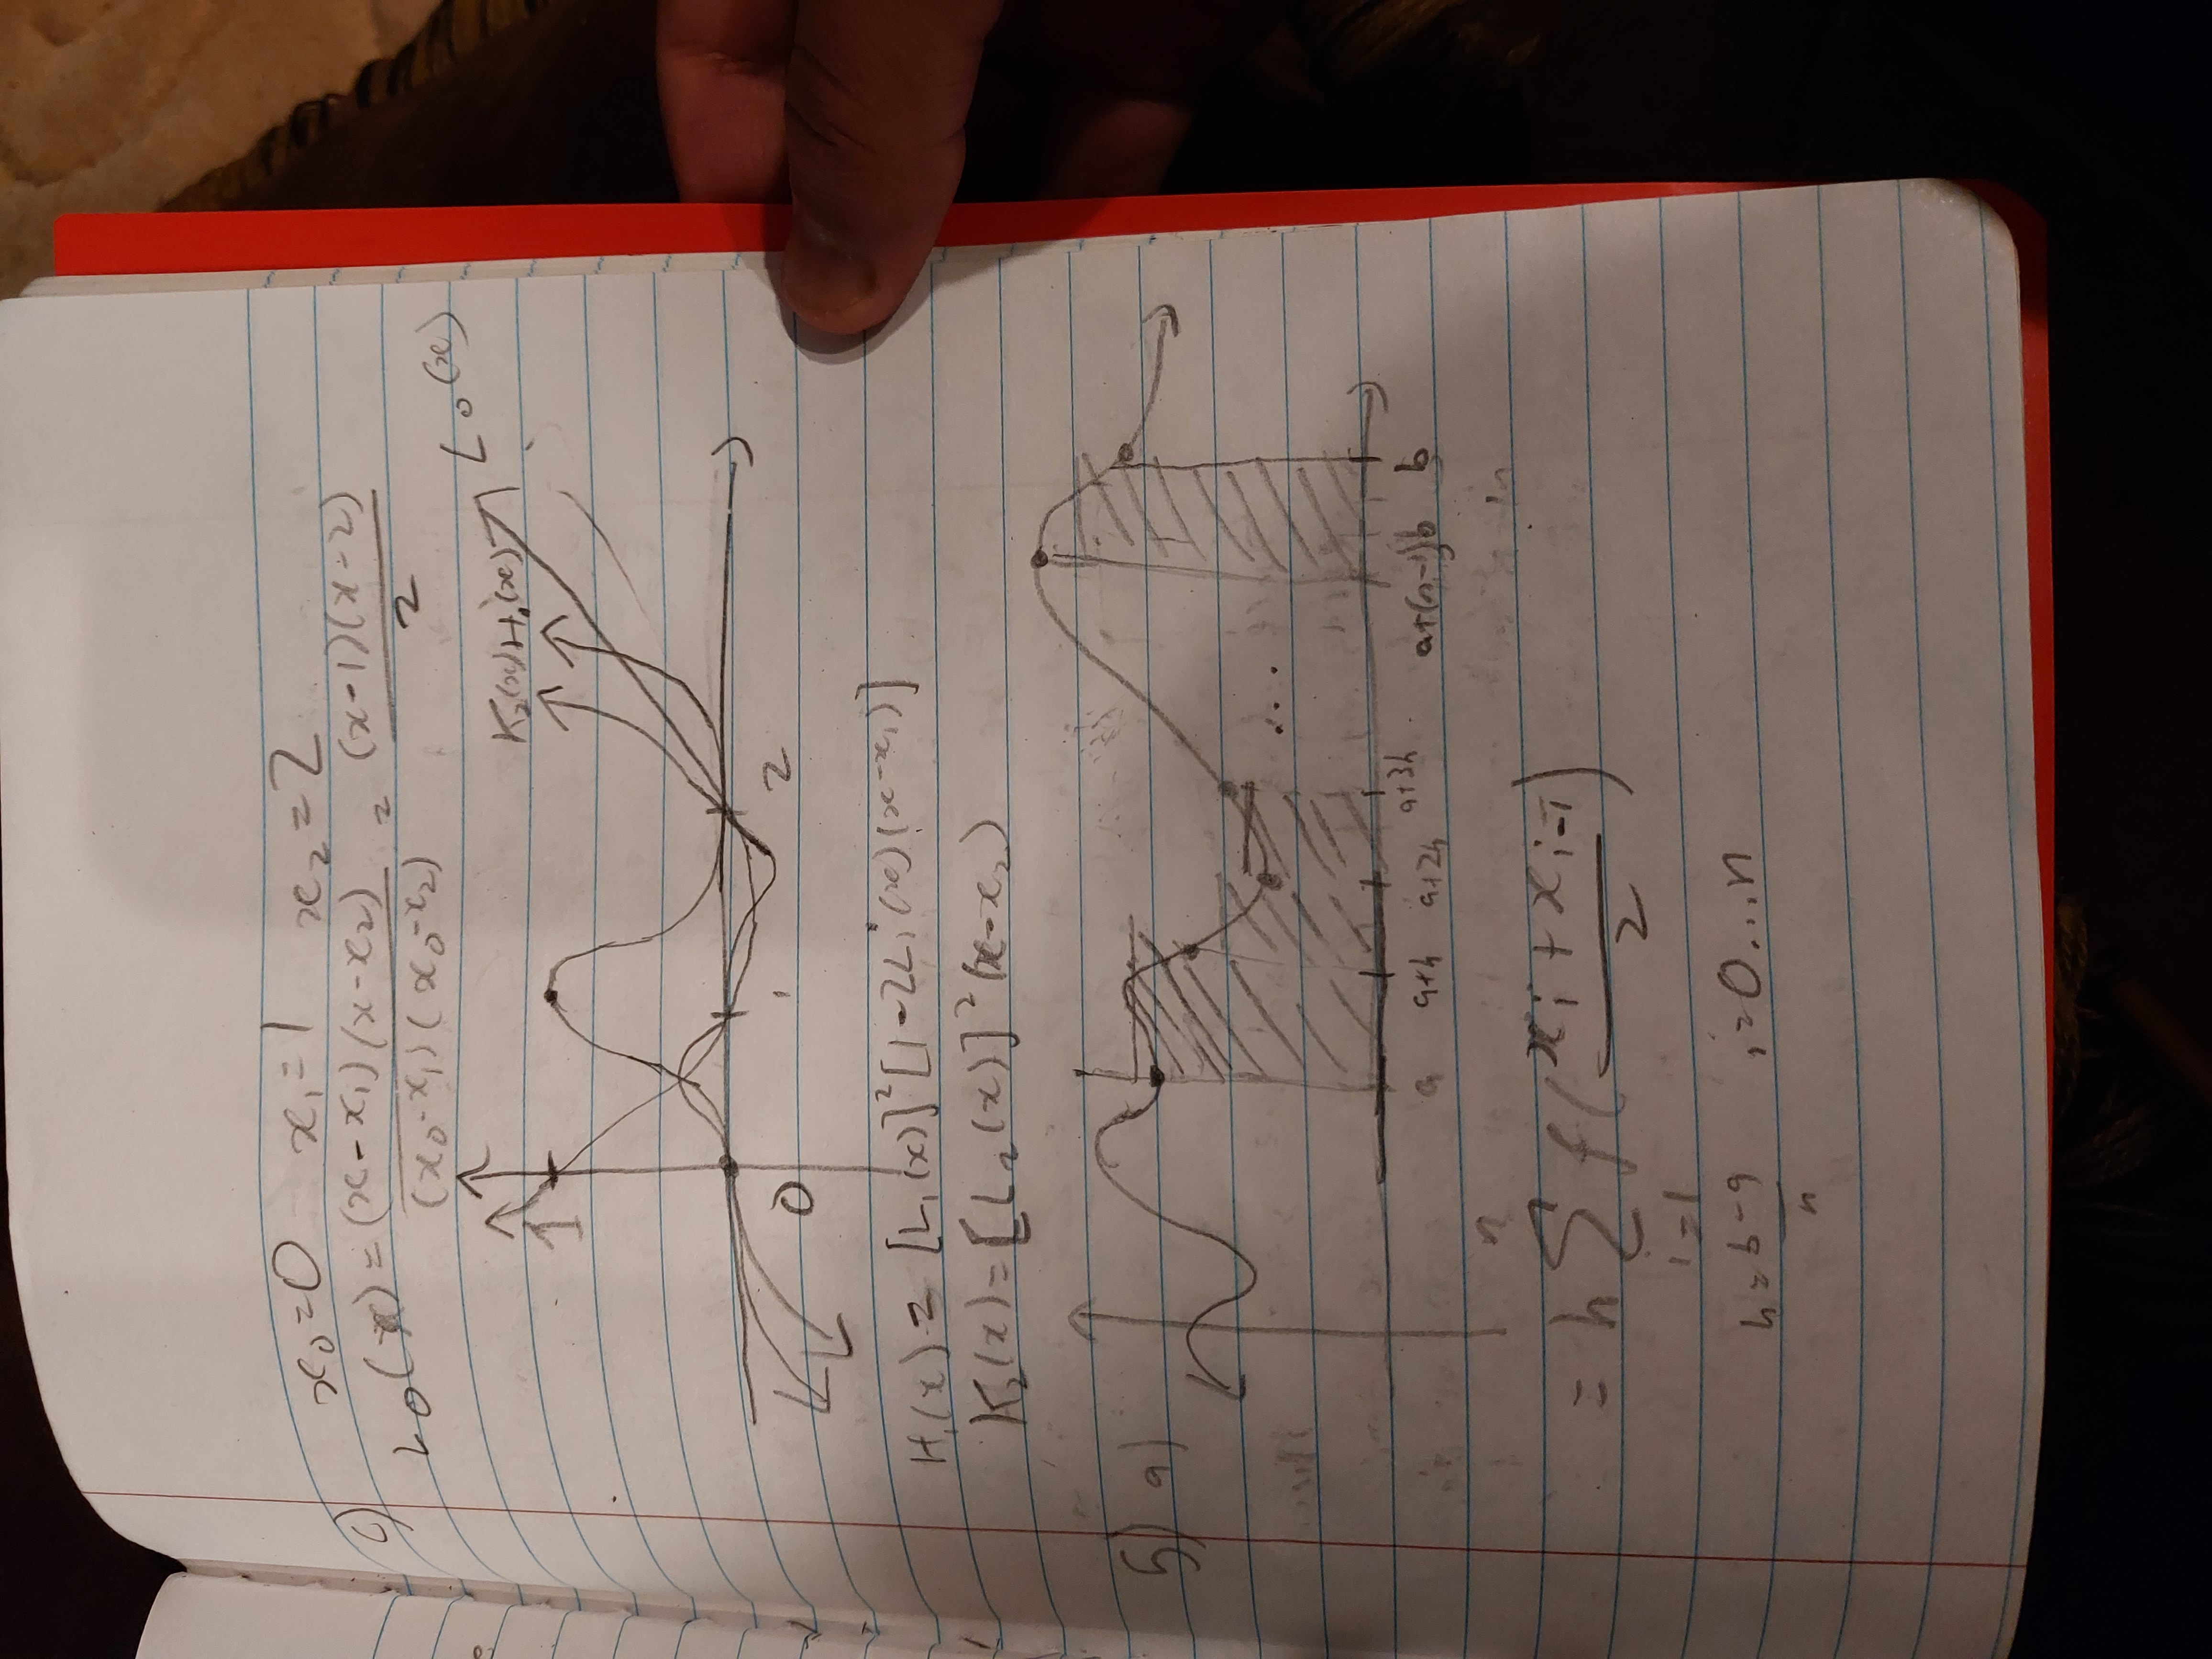 x₀=0 x₁=1 x₂=2
c) L₀(x) = (x-x₁)(x-x₂) / (x₀-x₁)(x₀-x₂) = (x-1)(x-2) / 2
L₀(x)
K₂(x) H₁(x)
1
0 1 2
H₁(x) = [L₁(x)]²[1-2L₁'(x)(x-x₁)]
K₂(x) = [L₂(x)]²(x-x₂)
5) a)
...
a a+h a+2h a+3h a+(n-1)b b
= h ∑ᵢ₌₁ⁿ f((xᵢ + xᵢ₋₁) / 2)
h = b-a / n i=0...n